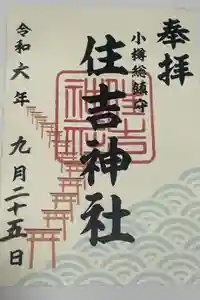 奉拝
小樽総鎮守
住吉神社
令和六年 九月二十五日